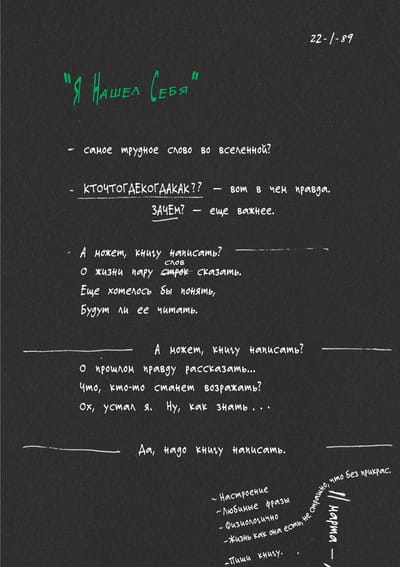 22-1-89
"Я Нашел Себя"
- самое трудное слово во вселенной?
- КТОЧТОГДЕКОГДАКАК?? – вот в чем правда.
ЗАЧЕМ? – еще важнее.
- А может, книгу написать?
слов
О жизни пару строк сказать.
Еще хотелось бы понять,
Будут ли ее читать.
А может, книгу написать?
О прошлом правду рассказать...
Что, кто-то станет возражать?
Ох, устал я. Ну, как знать...
Да, надо книгу написать.
- Настроение
- Любимые фразы
- Физиологично
- Жизнь как она есть, не страшно, что без прикрас.
- Пиши книгу.
11 марта –